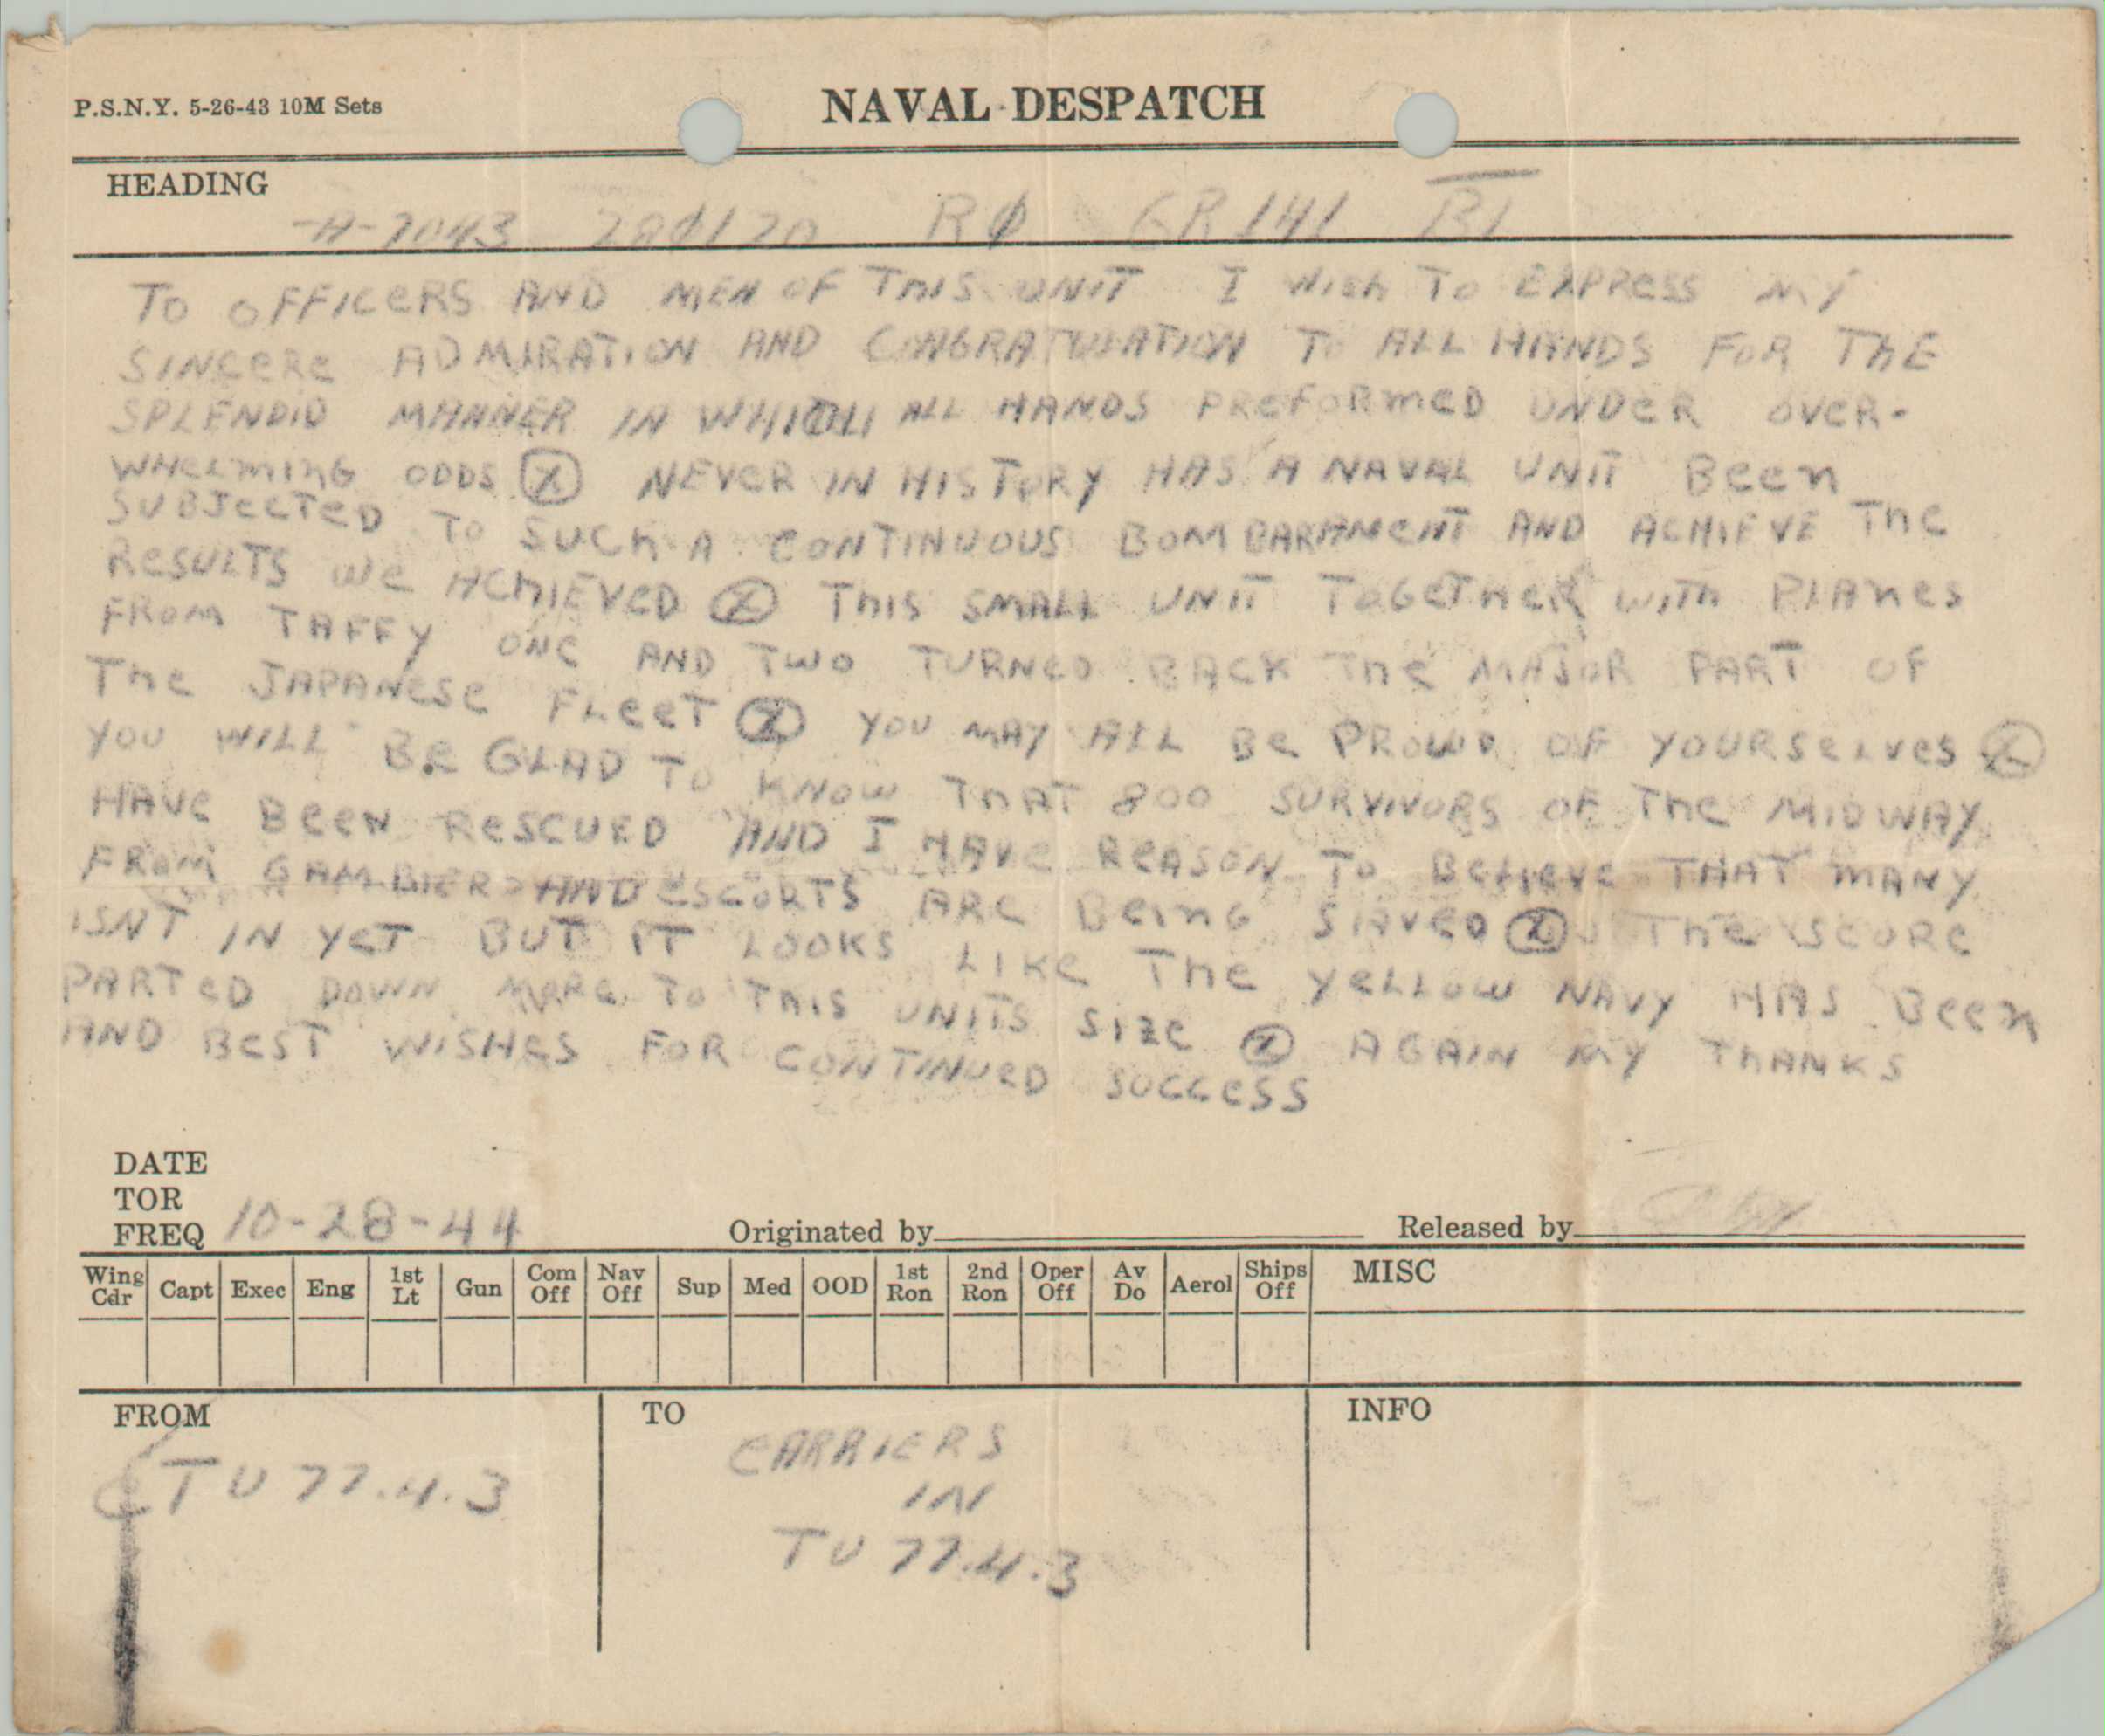 P.S.N.Y. 5-26-43 10M Sets
NAVAL DESPATCH
HEADING
-A-7043 280120 RØ GR 141 BT
TO OFFICERS AND MEN OF THIS UNIT I WISH TO EXPRESS MY
SINCERE ADMIRATION AND CONGRATULATION TO ALL HANDS FOR THE
SPLENDID MANNER IN WHICH ALL HANDS PREFORMED UNDER OVER-
WHELMING ODDS X NEVER IN HISTORY HAS A NAVAL UNIT BEEN
SUBJECTED TO SUCH A CONTINUOUS BOMBARDMENT AND ACHIEVE THE
RESULTS WE ACHIEVED X THIS SMALL UNIT TOGETHER WITH PLANES
FROM TAFFY ONE AND TWO TURNED BACK THE MAJOR PART OF
THE JAPANESE FLEET X YOU MAY ALL BE PROUD OF YOURSELVES X
YOU WILL BE GLAD TO KNOW THAT 800 SURVIVORS OF THE MIDWAY
HAVE BEEN RESCUED AND I HAVE REASON TO BELIEVE THAT MANY
FROM GAMBIER AND ESCORTS ARE BEING SAVED X THE SCORE
ISNT IN YET BUT IT LOOKS LIKE THE YELLOW NAVY HAS BEEN
PARTED DOWN MORE TO THIS UNITS SIZE X AGAIN MY THANKS
AND BEST WISHES FOR CONTINUED SUCCESS
DATE
TOR
FREQ 10-28-44 Originated by Released by
Wing Cdr Capt Exec Eng 1st Lt Gun Com Off Nav Off Sup Med OOD 1st Ron 2nd Ron Oper Off Av Do Aerol Ships Off MISC
FROM TO INFO
CTU 77.4.3
CARRIERS
IN
TU 77.4.3